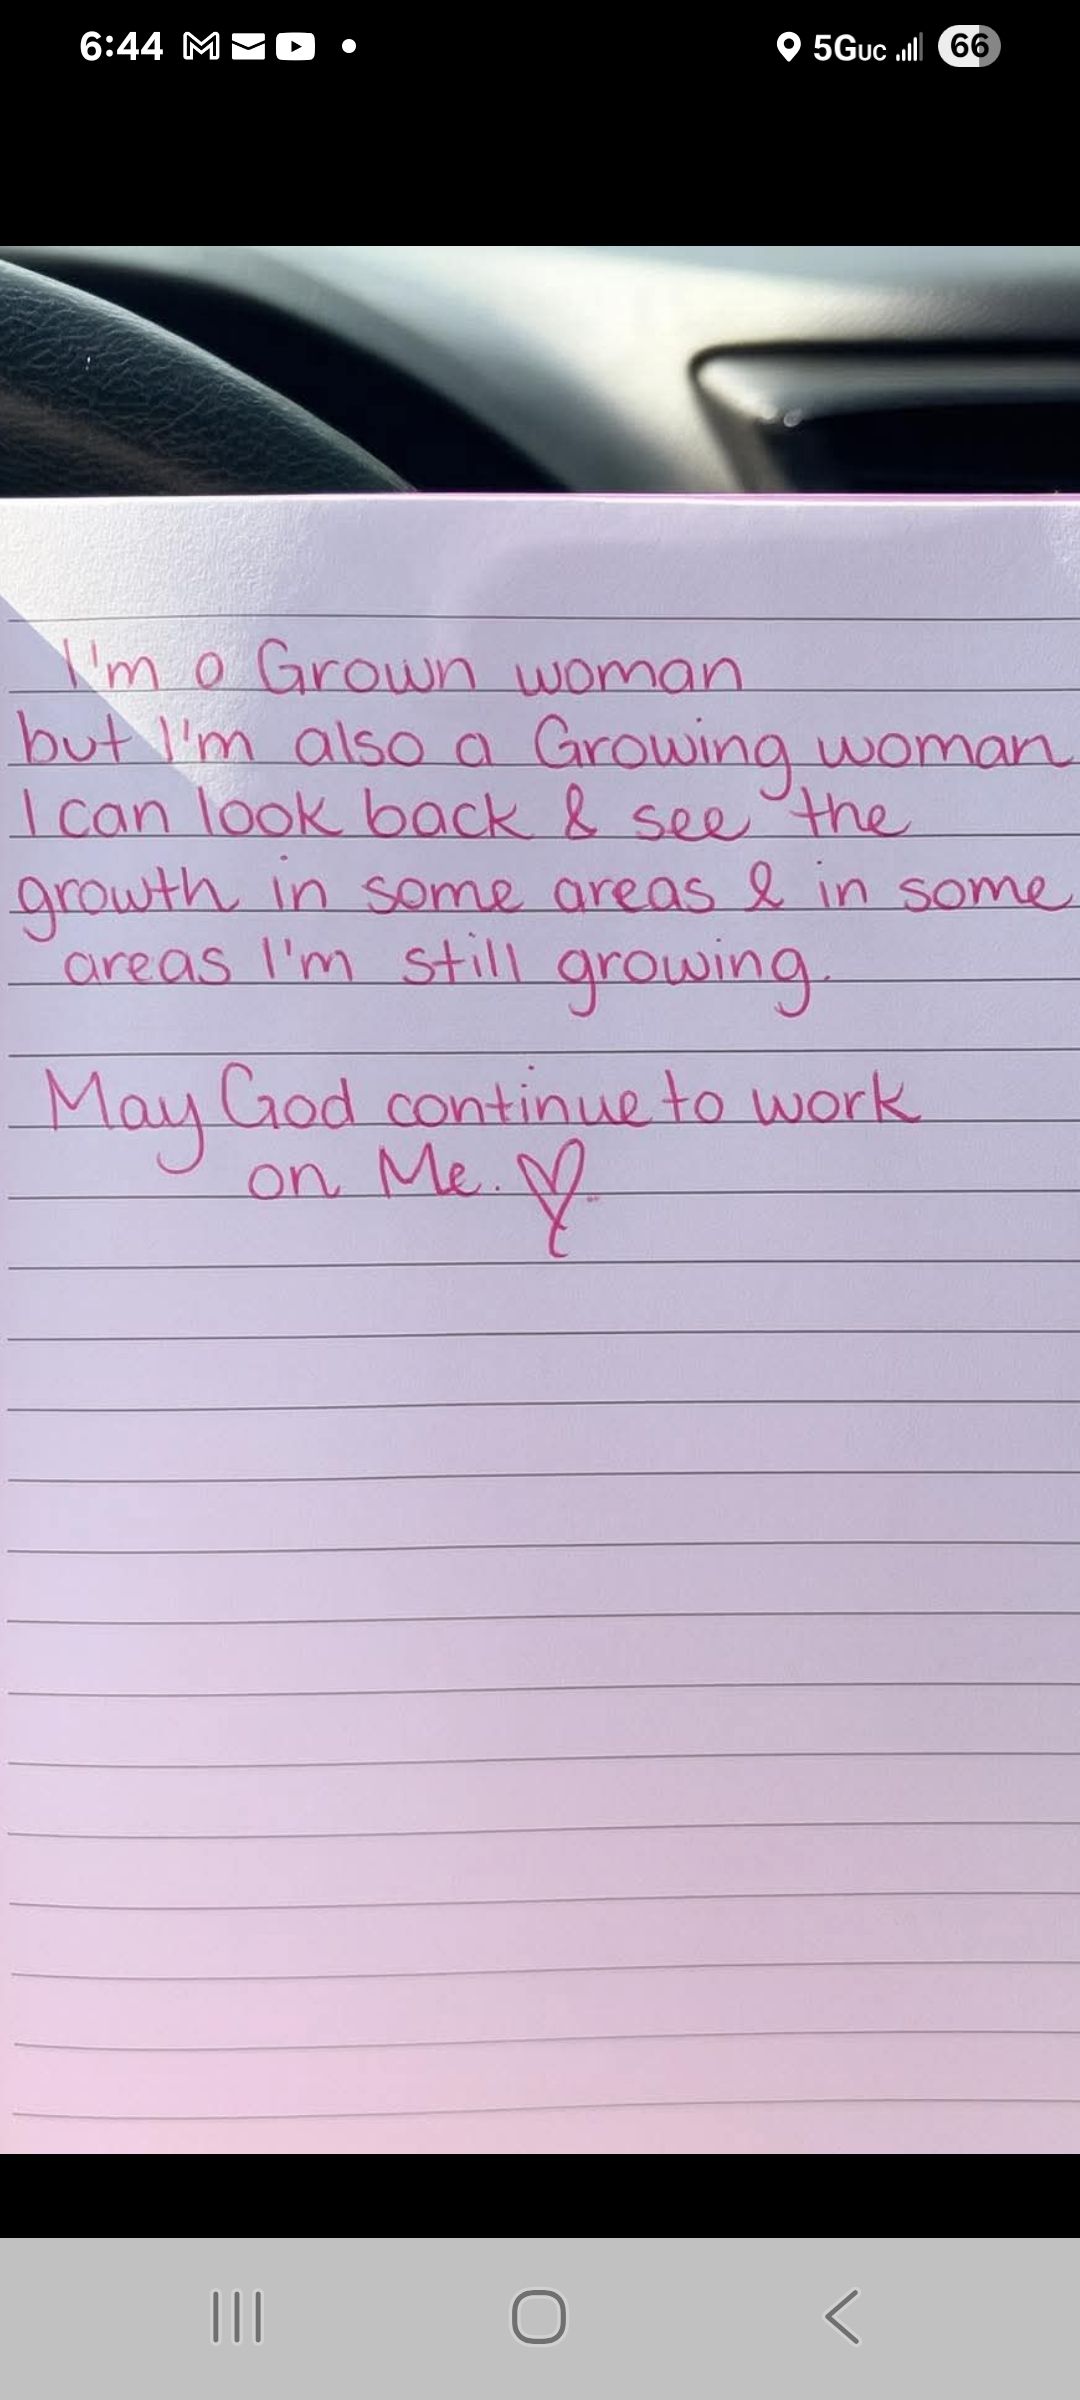 6:44
5GUC
66
I'm a Grown woman
but I'm also a Growing woman
I can look back & see the
growth in some areas & in some
areas I'm still growing.
May God continue to work
on Me.